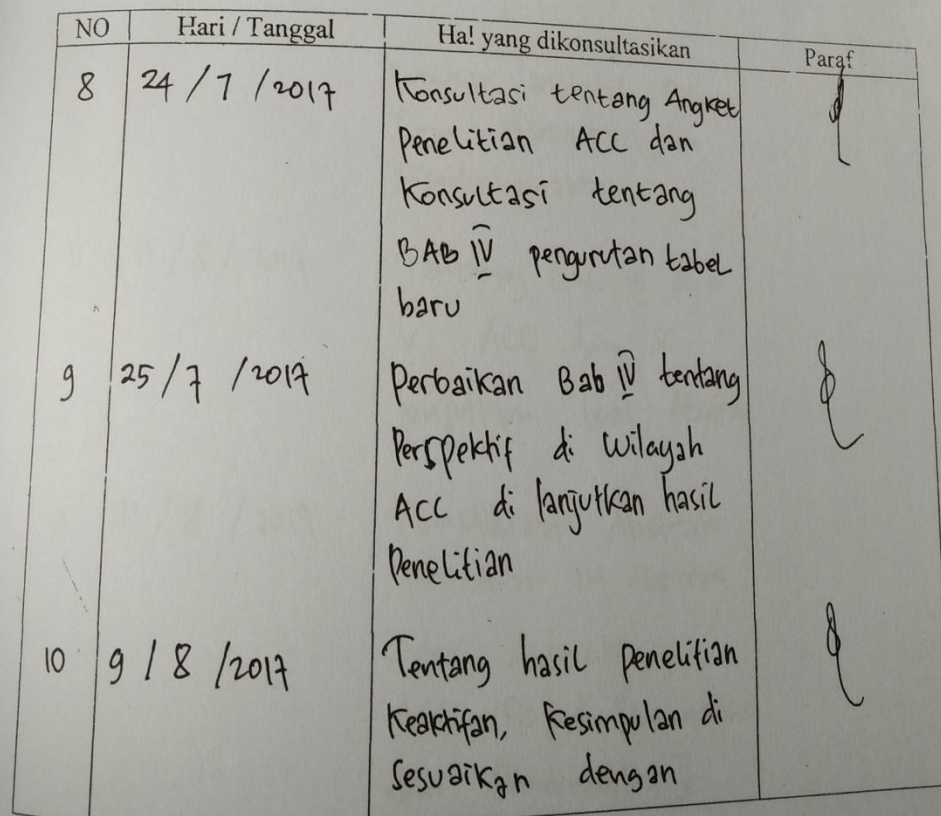 NO Hari / Tanggal Ha! yang dikonsultasikan Paraf
8 24/7/2017 Konsultasi tentang Angket
Penelitian ACC dan
Konsultasi tentang
BAB IV pengurutan tabel
baru
9 25/7/2017 Perbaikan Bab IV tentang
Perspektif di Wilayah
ACC di lanjutkan hasil
Penelitian
10 9/8/2017 Tentang hasil penelitian
Keaktifan, Kesimpulan di
Sesuaikan dengan